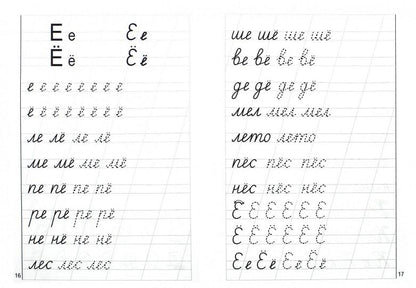 Е е Е е
Ё ё Ё ё
е е е е е е е е
ё ё ё ё ё ё ё ё
ле лё ле лё
ме мё ме мё
пе пё пе пё
ре рё ре рё
не нё не нё
лес лес лес
16
ше шё ше шё
ве вё ве вё
де дё де дё
мел мел мел
лето лето
пёс пёс пёс
нёс нёс нёс
Е Е Е Е Е Е
Ё Ё Ё Ё Ё Ё
Ее Ёё Ее Ёё
17